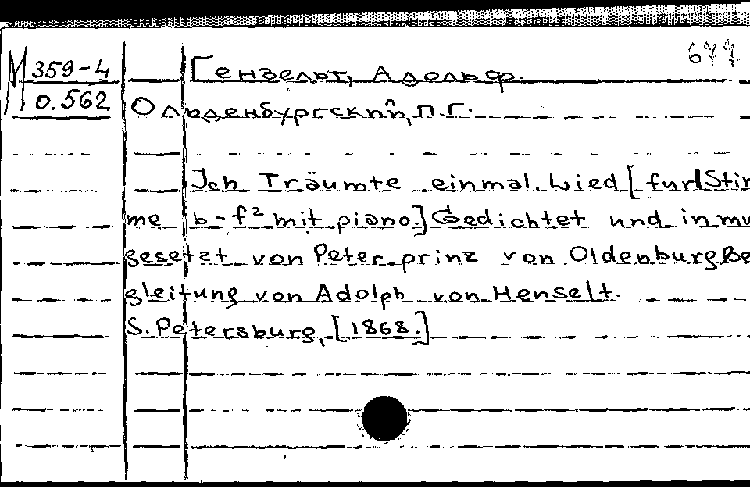 М 359-4
0.562
677
Гензельт, Адольф.
Ольденбургский, П.Г.
Ich Träumte einmal. Lied [fur 1 Stim
me b-f² mit piano.] Gedichtet und in mu
gesetzt von Peter prinz von Oldenburg Be
gleitung von Adolph von Henselt.
S. Petersburg, [1868.]